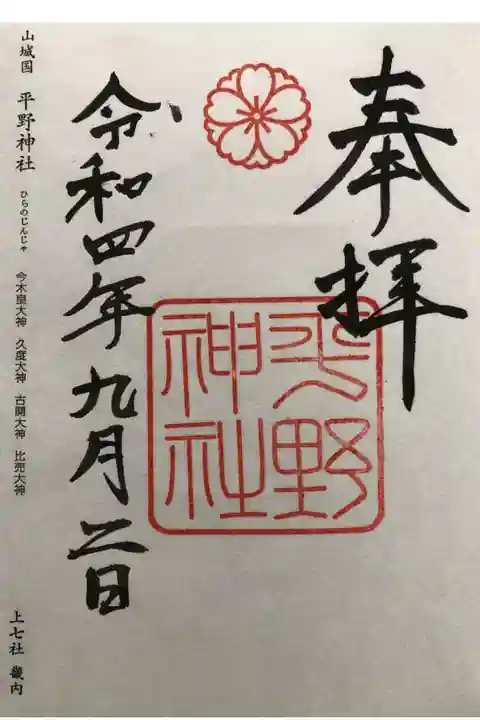 奉拝
平野
神社
令和四年九月二日
山城国 平野神社 ひらのじんじゃ 今木皇大神 久度大神 古開大神 比売大神
上七社 畿内